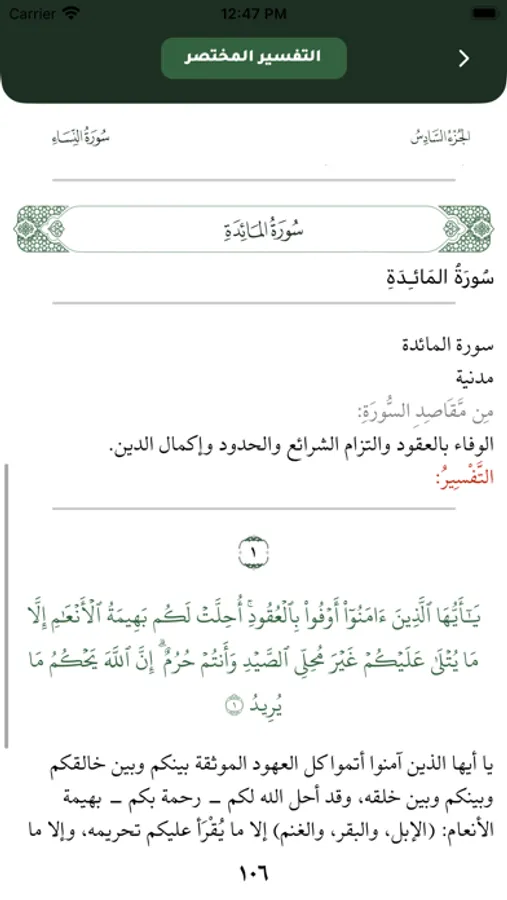 Carrier 12:47 PM
التفسير المختصر
الجزء السادس سورة النساء
سُورَةُ المَائِدَةِ
سُورَةُ المَائِدَةِ
سورة المائدة
مدنية
مِن مَّقَاصِدِ السُّورَةِ:
الوفاء بالعقود والتزام الشرائع والحدود وإكمال الدين.
التَّفْسِيرُ:
١
يَـٰٓأَيُّهَا ٱلَّذِينَ ءَامَنُوٓاْ أَوۡفُواْ بِٱلۡعُقُودِۚ أُحِلَّتۡ لَكُم بَهِيمَةُ ٱلۡأَنۡعَٰمِ إِلَّا
مَا يُتۡلَىٰ عَلَيۡكُمۡ غَيۡرَ مُحِلِّي ٱلصَّيۡدِ وَأَنتُمۡ حُرُمٌۗ إِنَّ ٱللَّهَ يَحۡكُمُ مَا
يُرِيدُ ١
يا أيها الذين آمنوا أتموا كل العهود الموثقة بينكم وبين خالقكم
وبينكم وبين خلقه، وقد أحل الله لكم – رحمة بكم – بهيمة
الأنعام: (الإبل، والبقر، والغنم) إلا ما يُقْرَأ عليكم تحريمه، وإلا ما
١٠٦